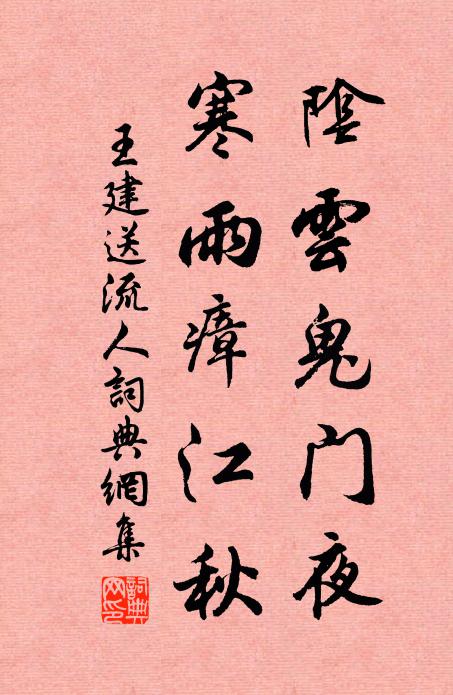 陰雲鬼门夜
寒雨瘴江秋
王建送流人詞典網集
詞典網印